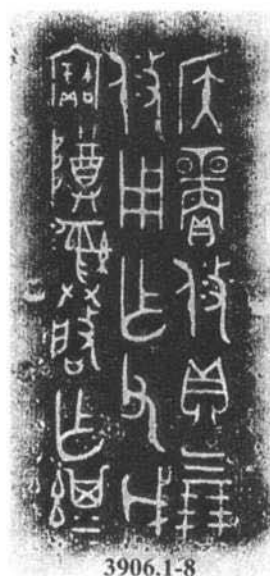 侯賞攸貝三朋
攸用乍父戊
寶尊彝啟乍綨
3906.1-8